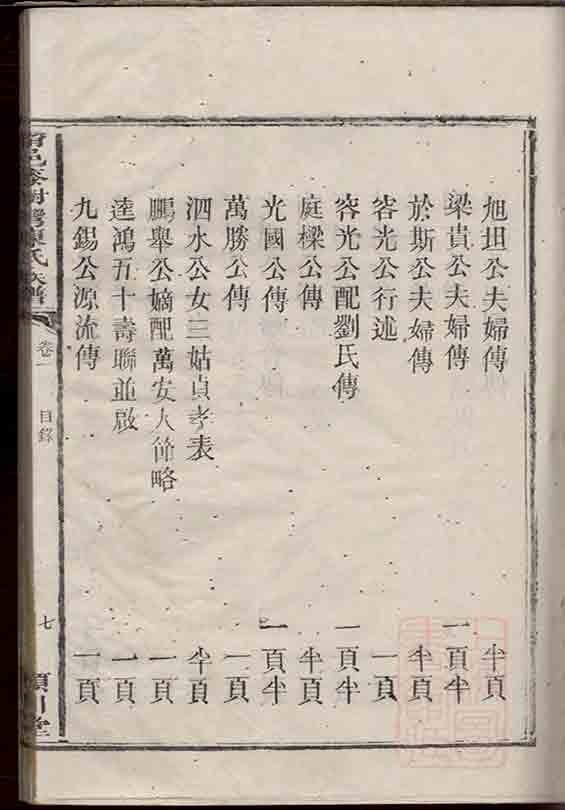 旭坦公夫婦傳 半頁
梁貴公夫婦傳 一頁半
於斯公夫婦傳 半頁
容光公行述 一頁
容光公配劉氏傳 一頁半
庭樑公傳 半頁
光國公傳 一頁半
萬勝公傳 一頁
泗水公女三姑貞孝表 半頁
鵬舉公嫡配萬安人節略 一頁
逵鴻五十壽聯並啟 一頁
九錫公源流傳 一頁
陳氏族譜 卷一 目錄 七 潁川堂